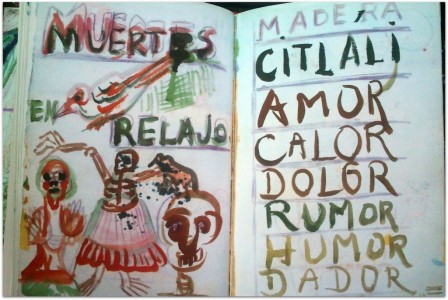 MUERTES
EN
RELAJO
MADERA
CITLALI
AMOR
CALOR
DOLOR
RUMOR
HUMOR
DADOR